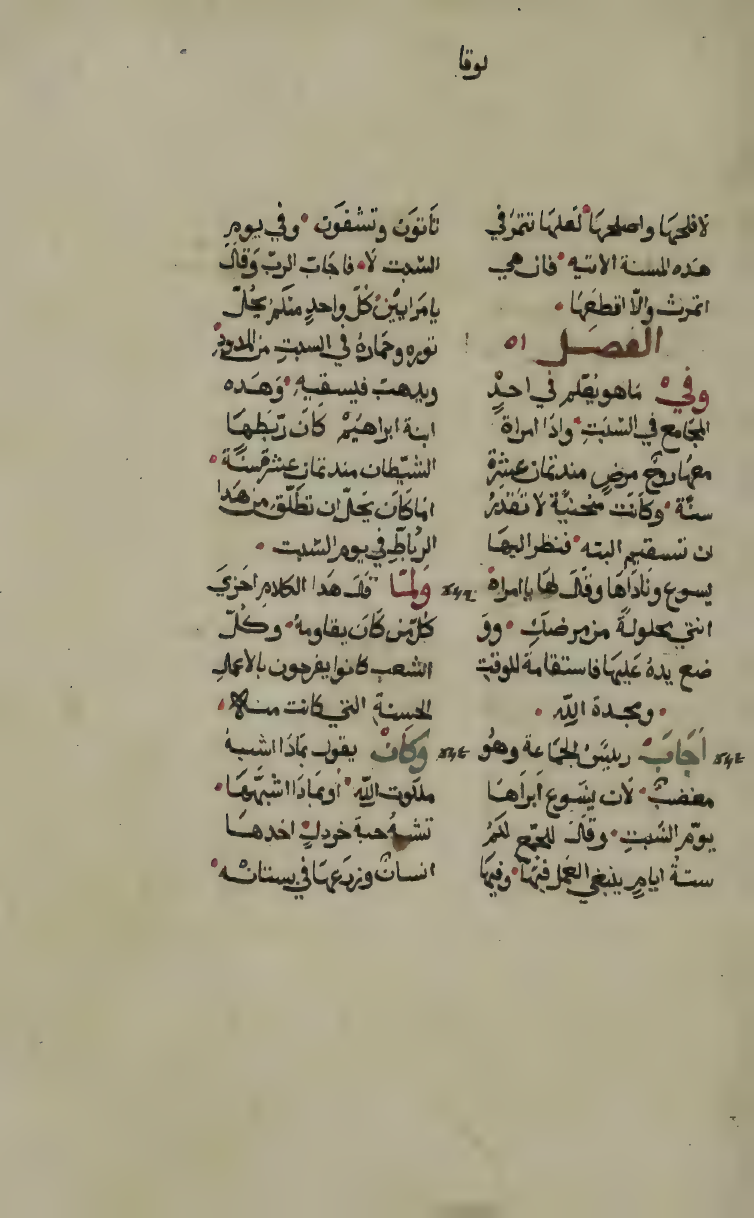 لوقا
لافلحها واصلحها لعلها تتمر في
هذه السنة الاتيه فان هي
اتمرت والّا اقطعها
الفصل ٥١
وفي ما هو يعلم في احدٍ
المجامع في السَّبتِ واذا امراة
معها روح مرضٍ مند تمان عشرة
سنة وكانت منحنيّة لا تقدرُ
ان تستقيم البته فنظر اليها
يسوع وناداها وقال لها يا امراة
انتي محلولة من مرضكِ وو
ضع يده عليها فاستقامة للوقتِ
ومجدة الله
اجَابَ رييس الجماعة وهُو
مغضبٌ لان يسوع ابراها
يوم السَّبتِ وقال للجمع لكم
ستة ايامٍ ينبغي العَمل فيها وفيها
تاتون وتشفون وفي يومِ
السَّبت لا فاجابَ الربّ وقال
يا مرايين كلّ واحدٍ منكم يحلّ
توره وحماره في السبتِ من المدود
ويدهب فيسقيه وهَده
ابنة ابراهيم كان ربَطها
الشيطان مند تمان عشرة سنة
اما كان يحلّ ان تطلق من هذا
الرباط في يوم السَّبت
ولمّا قال هَدا الكلام اخزي
كلّ من كان يقاومهُ وكلّ
الشعب كانوا يفرحون بالاعمالِ
الحسنة التي كانت منه
وكان يقول بمَاذا اشبهُ
ملكوت الله او بماذا اشبّهها
تشبهُ حبة خردلٍ اخدها
انسان وزرعها في بستانه